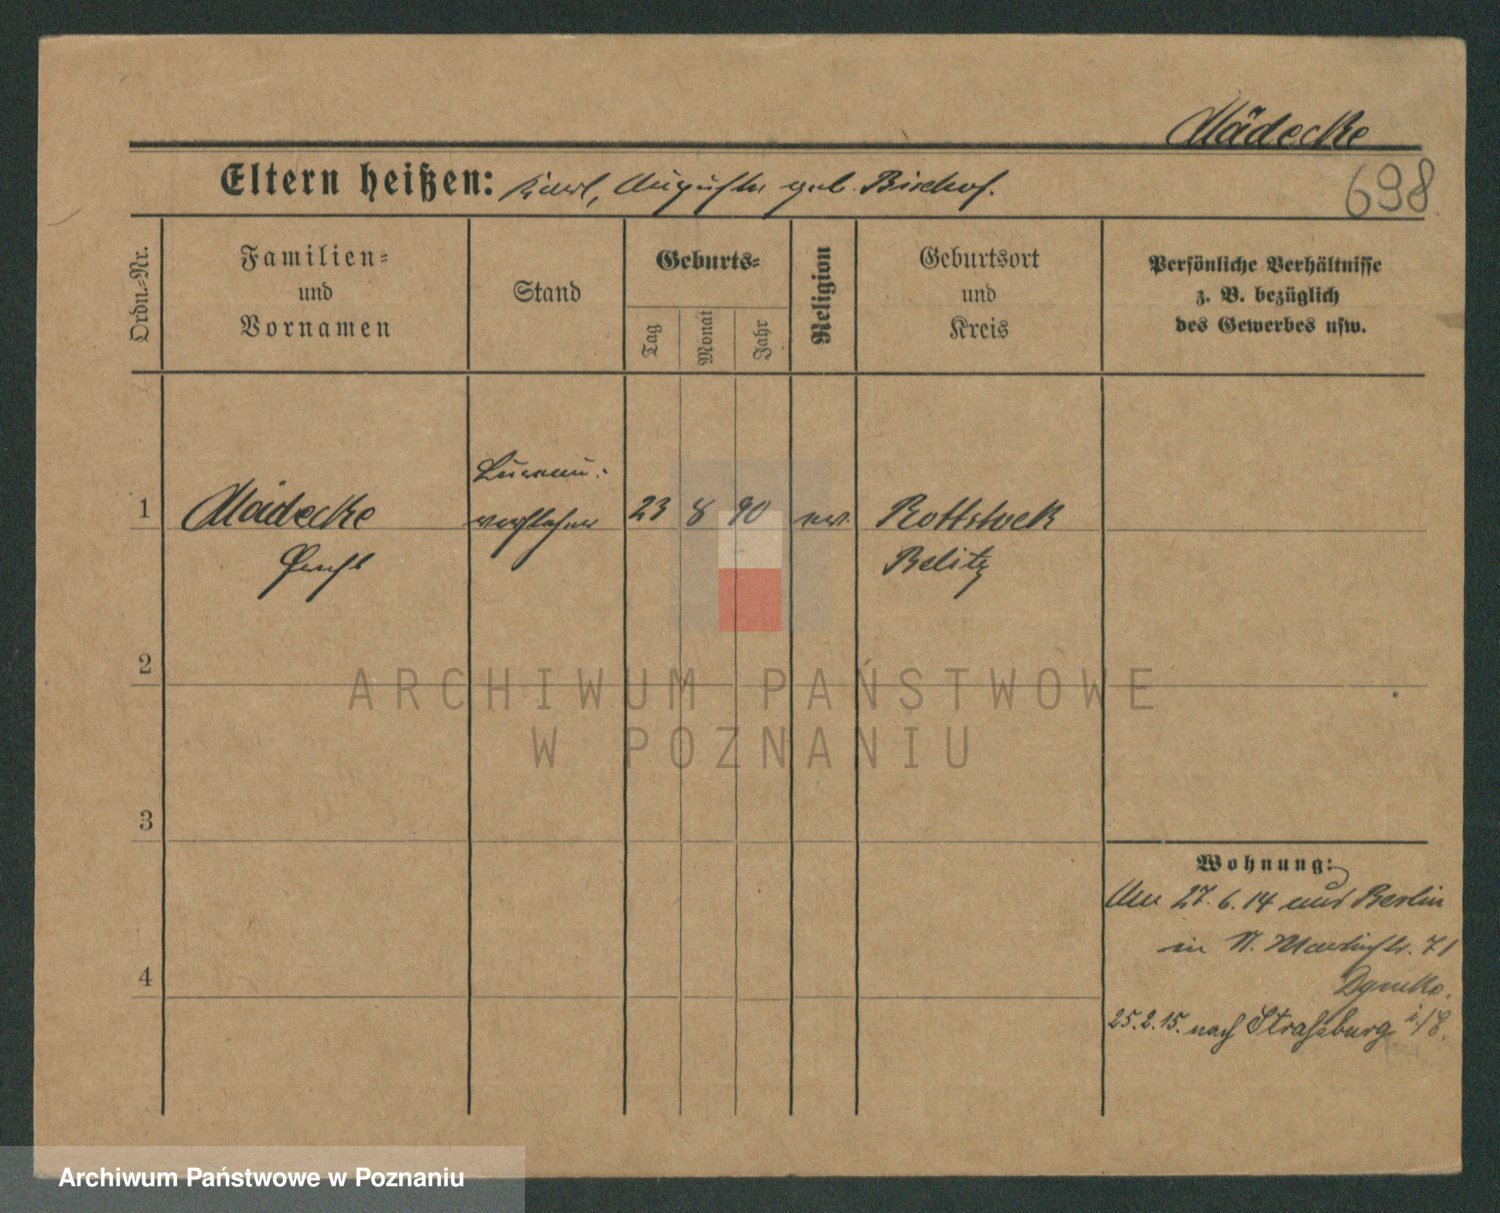 Mädecke
698
Eltern heißen: Karl, Auguste geb. Bischof.
Ordn.-Nr.
Familien-
und
Vornamen
Stand
Geburts-
Tag
Monat
Jahr
Religion
Geburtsort
und
Kreis
Persönliche Verhältnisse
z. B. bezüglich
des Gewerbes usw.
1
Mädecke
Ernst
Bureau-
vorsteher
23 8 90 ev.
Rottstock
Belitz
2
3
4
Wohnung:
Am 27. 6. 14 aus Berlin
in St. Martinstr. 71
25. 2. 15. nach Straßburg i/E.
ARCHIWUM PAŃSTWOWE
W POZNANIU
Archiwum Państwowe w Poznaniu